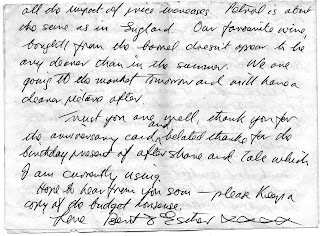 all the impact of price increases. Petrol is about
the same as in England. Our favourite wine,
bought from the barrel doesn't appear to be
any dearer than in the summer. We are
going to the market tomorrow and will have a
clearer picture after.
Trust you are well, thank you for
the anniversary card, and belated thanks for the
birthday present of after shave and talc which
I am currently using.
Hope to hear from you soon — please keep a
copy of the budget nonsense.
Love Bent & Esther xxxxx